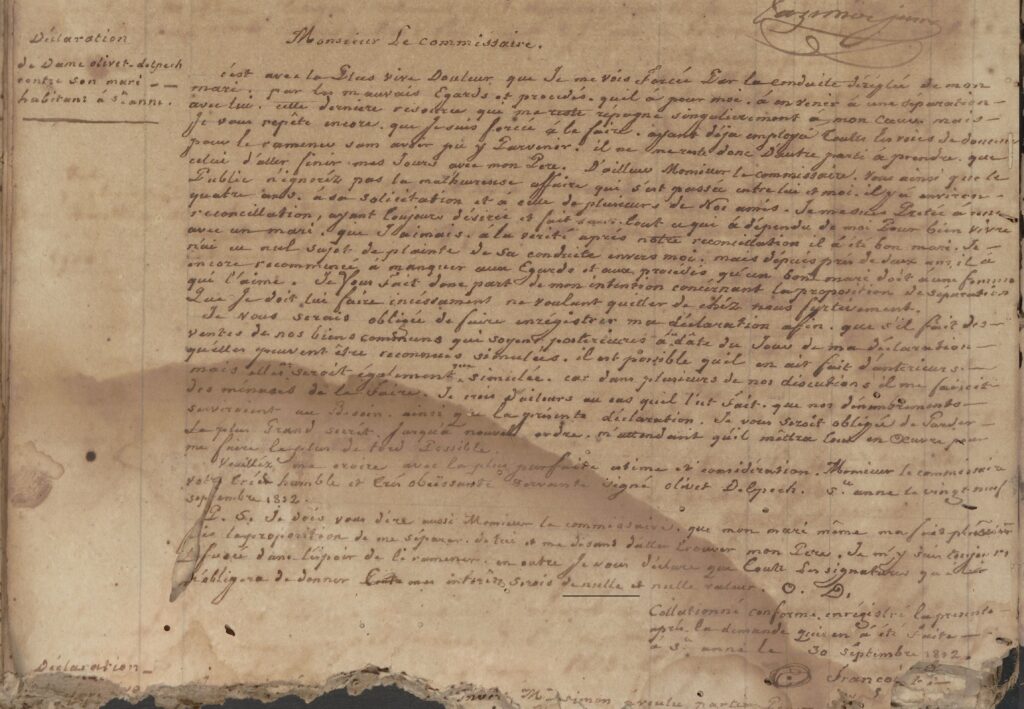 Cazimir jeune
Déclaration
de Dame olivet-delpech
contre son mari —
habitant à Ste anne.
Monsieur Le commissaire.
c'est avec la Plus vive Douleur que Je me vois Forcée Par la conduite déréglée de mon
mari, par les mauvais Egards et procédés, quil à pour moi, à en venir à une séparation —
avec lui. cette derniere resource qui me reste répugne singulierement a mon Cœur, mais —
Je vous repéte encore, que Je suis forcée à le faire. ayant déja employé Toutes les voies de douceur
pour le ramener sam avoir pû y Parvenir. il ne me reste donc D'autre parti à prendre, que
celui d'aller finir mes Jours avec mon Pere. D'ailleurs Monsieur le commissaire, Vous ainsi que le
Public n'ignoréz pas la malhureuse affaire qui s'est passée entre lui et moi, il y à environ
quatre ans, à sa solicitation et à celle de plusieurs de Nos amis. Je me suis Pretée à une
reconcillation, ayant toujours désirée et fait tout ce qui à dépendu de moi Pour bien vivre
avec un mari, que J'aimais. à la verité aprés notre reconcillation il à été bon mari, Je —
n'ai eu nul sujet de plainte de sa conduite envers moi, mais dépuis prés de deux ans, il à
encore recommencé à manquer aux Egards et aux procédés qu'un bon mari doit à une femme
qui l'aime. Je Vous Fait donc part de mon intention concernant la proposition de séparation
Que Je doit lui faire incessament ne voulant quitter de chéz nous furtivement.
Je vous serais obligée de faire enrégistrer ma déclaration afin, que s'il fait des —
ventes de nos biens communs que soyent postérieures à dâte du Jour de ma déclaration —
qu'elles peuvent être reconnues simulées. il est possible quil en ait fait d'antérieurs. —
mais elles seroit également simulée, car dans plusieurs de nos discutions il me faisoit
des ménases de la Faire. Je crois d'ailleurs au cas quil l'eut Fait, que nos dénombrements —
serviroient au Besoin, ainsi que la présente déclaration. Je vous seroit obligée de Garder
Le plus Grand secrét Jusqu'à nouvel ordre, m'attendant qu'il méttra tout en Œuvre pour
me faire le plus de tord Possible.
Veuilléz me croire avec la plus parfaite estime et considération, Monsieur le commissaire
votre trés humble et trés obéissante servante signé olivet Delpech. Ste anne le vingt neuf
septembre 1812.
P. S. Je dois vous dire aussi Monsieur le commissaire, que mon mari même ma fais plusieurs
fois la proposition de me séparer de lui et me disant d'aller trouver mon Pére, Je m'y suis toujours
refusée dans l'éspoir de le ramener, en outre Je vous déclare que toute les signatures que
obligera de donner contre mes interêts serois de nulle et nulle valeur. O. D.
Collationné conforme, enrégistré la présente —
aprés la demande qui en à été Faite —
à Ste anne le 30 septembre 1812.
Déclaration —